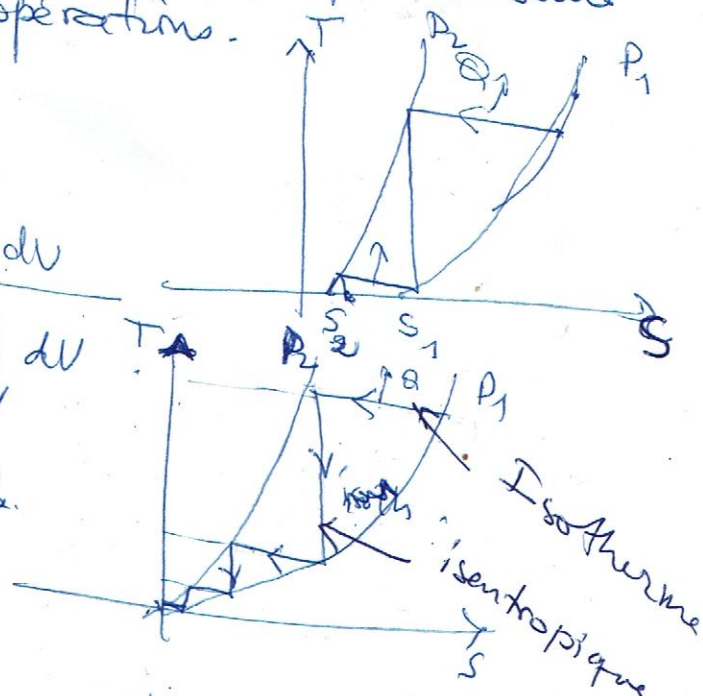 opérations.
T
P2
Q
P1
dV
S2
S1
S
dV
T
P2
Q
P1
Isotherme
isentropique
S